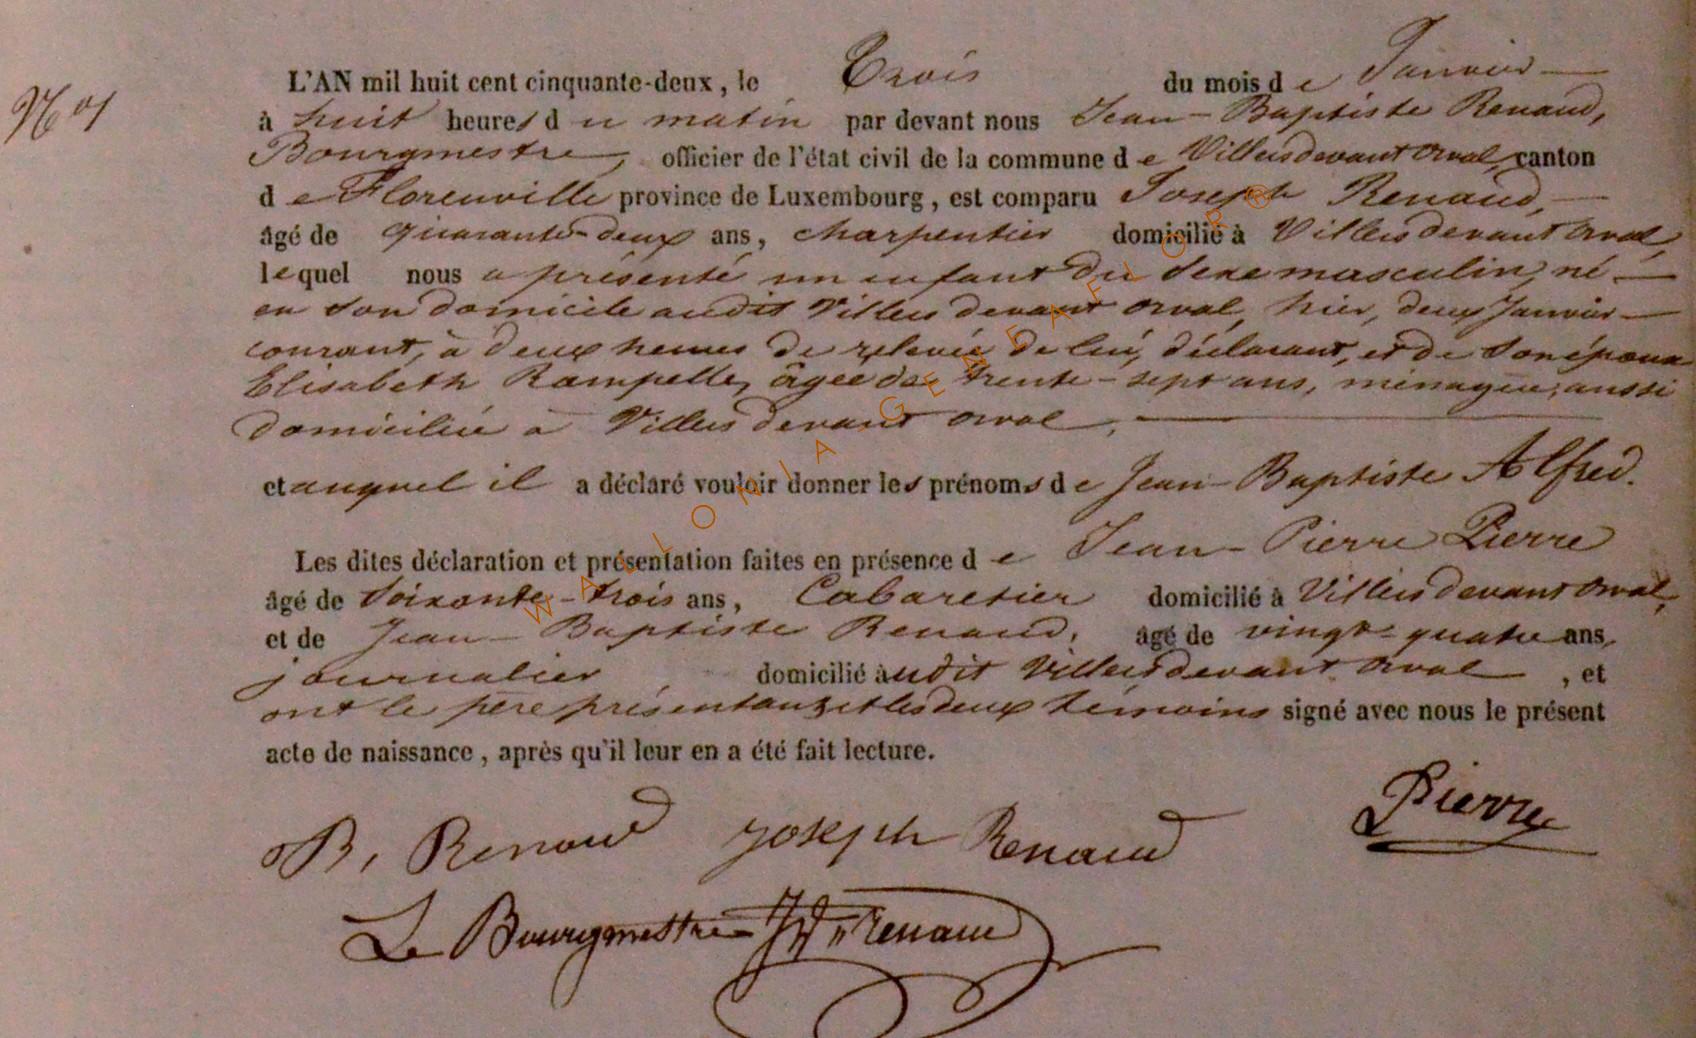 N° 1
L'AN mil huit cent cinquante-deux, le Trois du mois de Janvier
à huit heures du matin par devant nous Jean-Baptiste Renaud,
Bourgmestre, officier de l'état civil de la commune de Villers devant Orval, canton
de Florenville province de Luxembourg, est comparu Joseph Renaud,
âgé de quarante-deux ans, charpentier domicilié à Villers devant Orval,
lequel nous a présenté un enfant du sexe masculin, né
en son domicile audit Villers devant Orval, hier, deux Janvier
courant, à deux heures de relevée de lui, déclarant, et de son épouse
Elisabeth Rampelle, âgée de trente-sept ans, ménagère, aussi
domiciliée à Villers devant Orval,
et auquel il a déclaré vouloir donner les prénoms de Jean-Baptiste Alfred.
Les dites déclaration et présentation faites en présence de Jean-Pierre Pierre
âgé de soixante-trois ans, Cabaretier domicilié à Villers devant Orval,
et de Jean-Baptiste Renaud, âgé de vingt-quatre ans,
journalier domicilié audit Villers devant Orval, et
ont le père présentant et les deux témoins signé avec nous le présent
acte de naissance, après qu'il leur en a été fait lecture.
Pierre
JB, Renaud Joseph Renaud
Le Bourgmestre JB Renaud
WALLONIA GENEAFLOR®